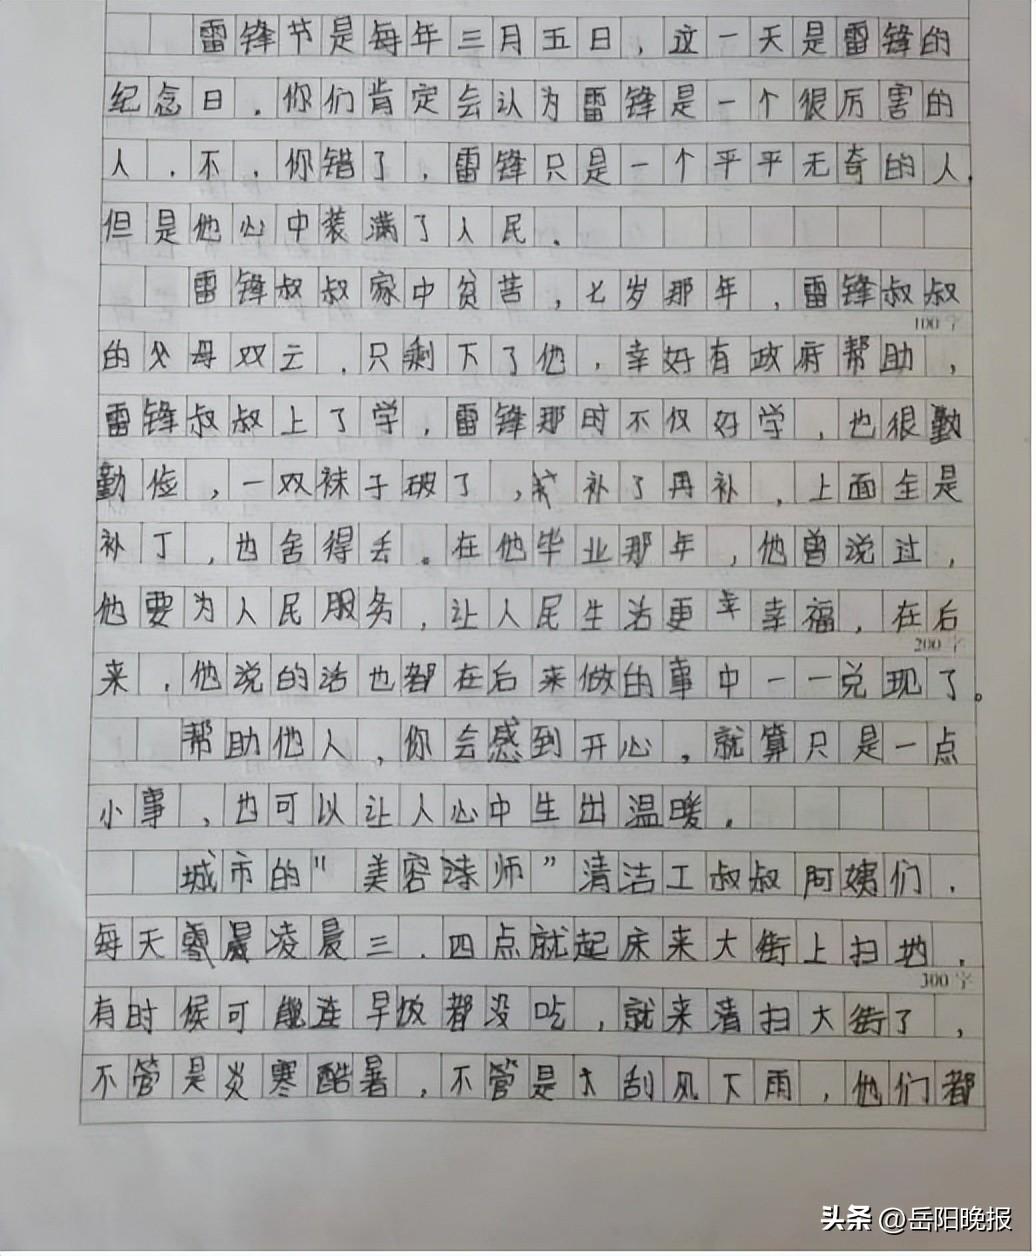 雷锋节是每年三月五日，这一天是雷锋的
纪念日，你们肯定会认为雷锋是一个很厉害的
人，不，你错了，雷锋只是一个平平无奇的人，
但是他心中装满了人民。
雷锋叔叔家中贫苦，七岁那年，雷锋叔叔
100字
的父母双云，只剩下了他，幸好有政府帮助，
雷锋叔叔上了学，雷锋那时不仅好学，也很勤
勤俭，一双袜子破了，补了再补，上面全是
补丁，也舍得丢。在他毕业那年，他曾说过，
他要为人民服务，让人民生活更幸幸福，在后
200字
来，他说的话也都在后来做的事中一一兑现了。
帮助他人，你会感到开心，就算只是一点
小事，也可以让人心中生出温暖。
城市的"美容涛师"清洁工叔叔阿姨们，
每天晨凌晨三、四点就起床来大街上扫地，
300字
有时候可能连早饭都没吃，就来清扫大街了，
不管是炎寒酷暑，不管是大刮风下雨，他们都
头条 @岳阳晚报